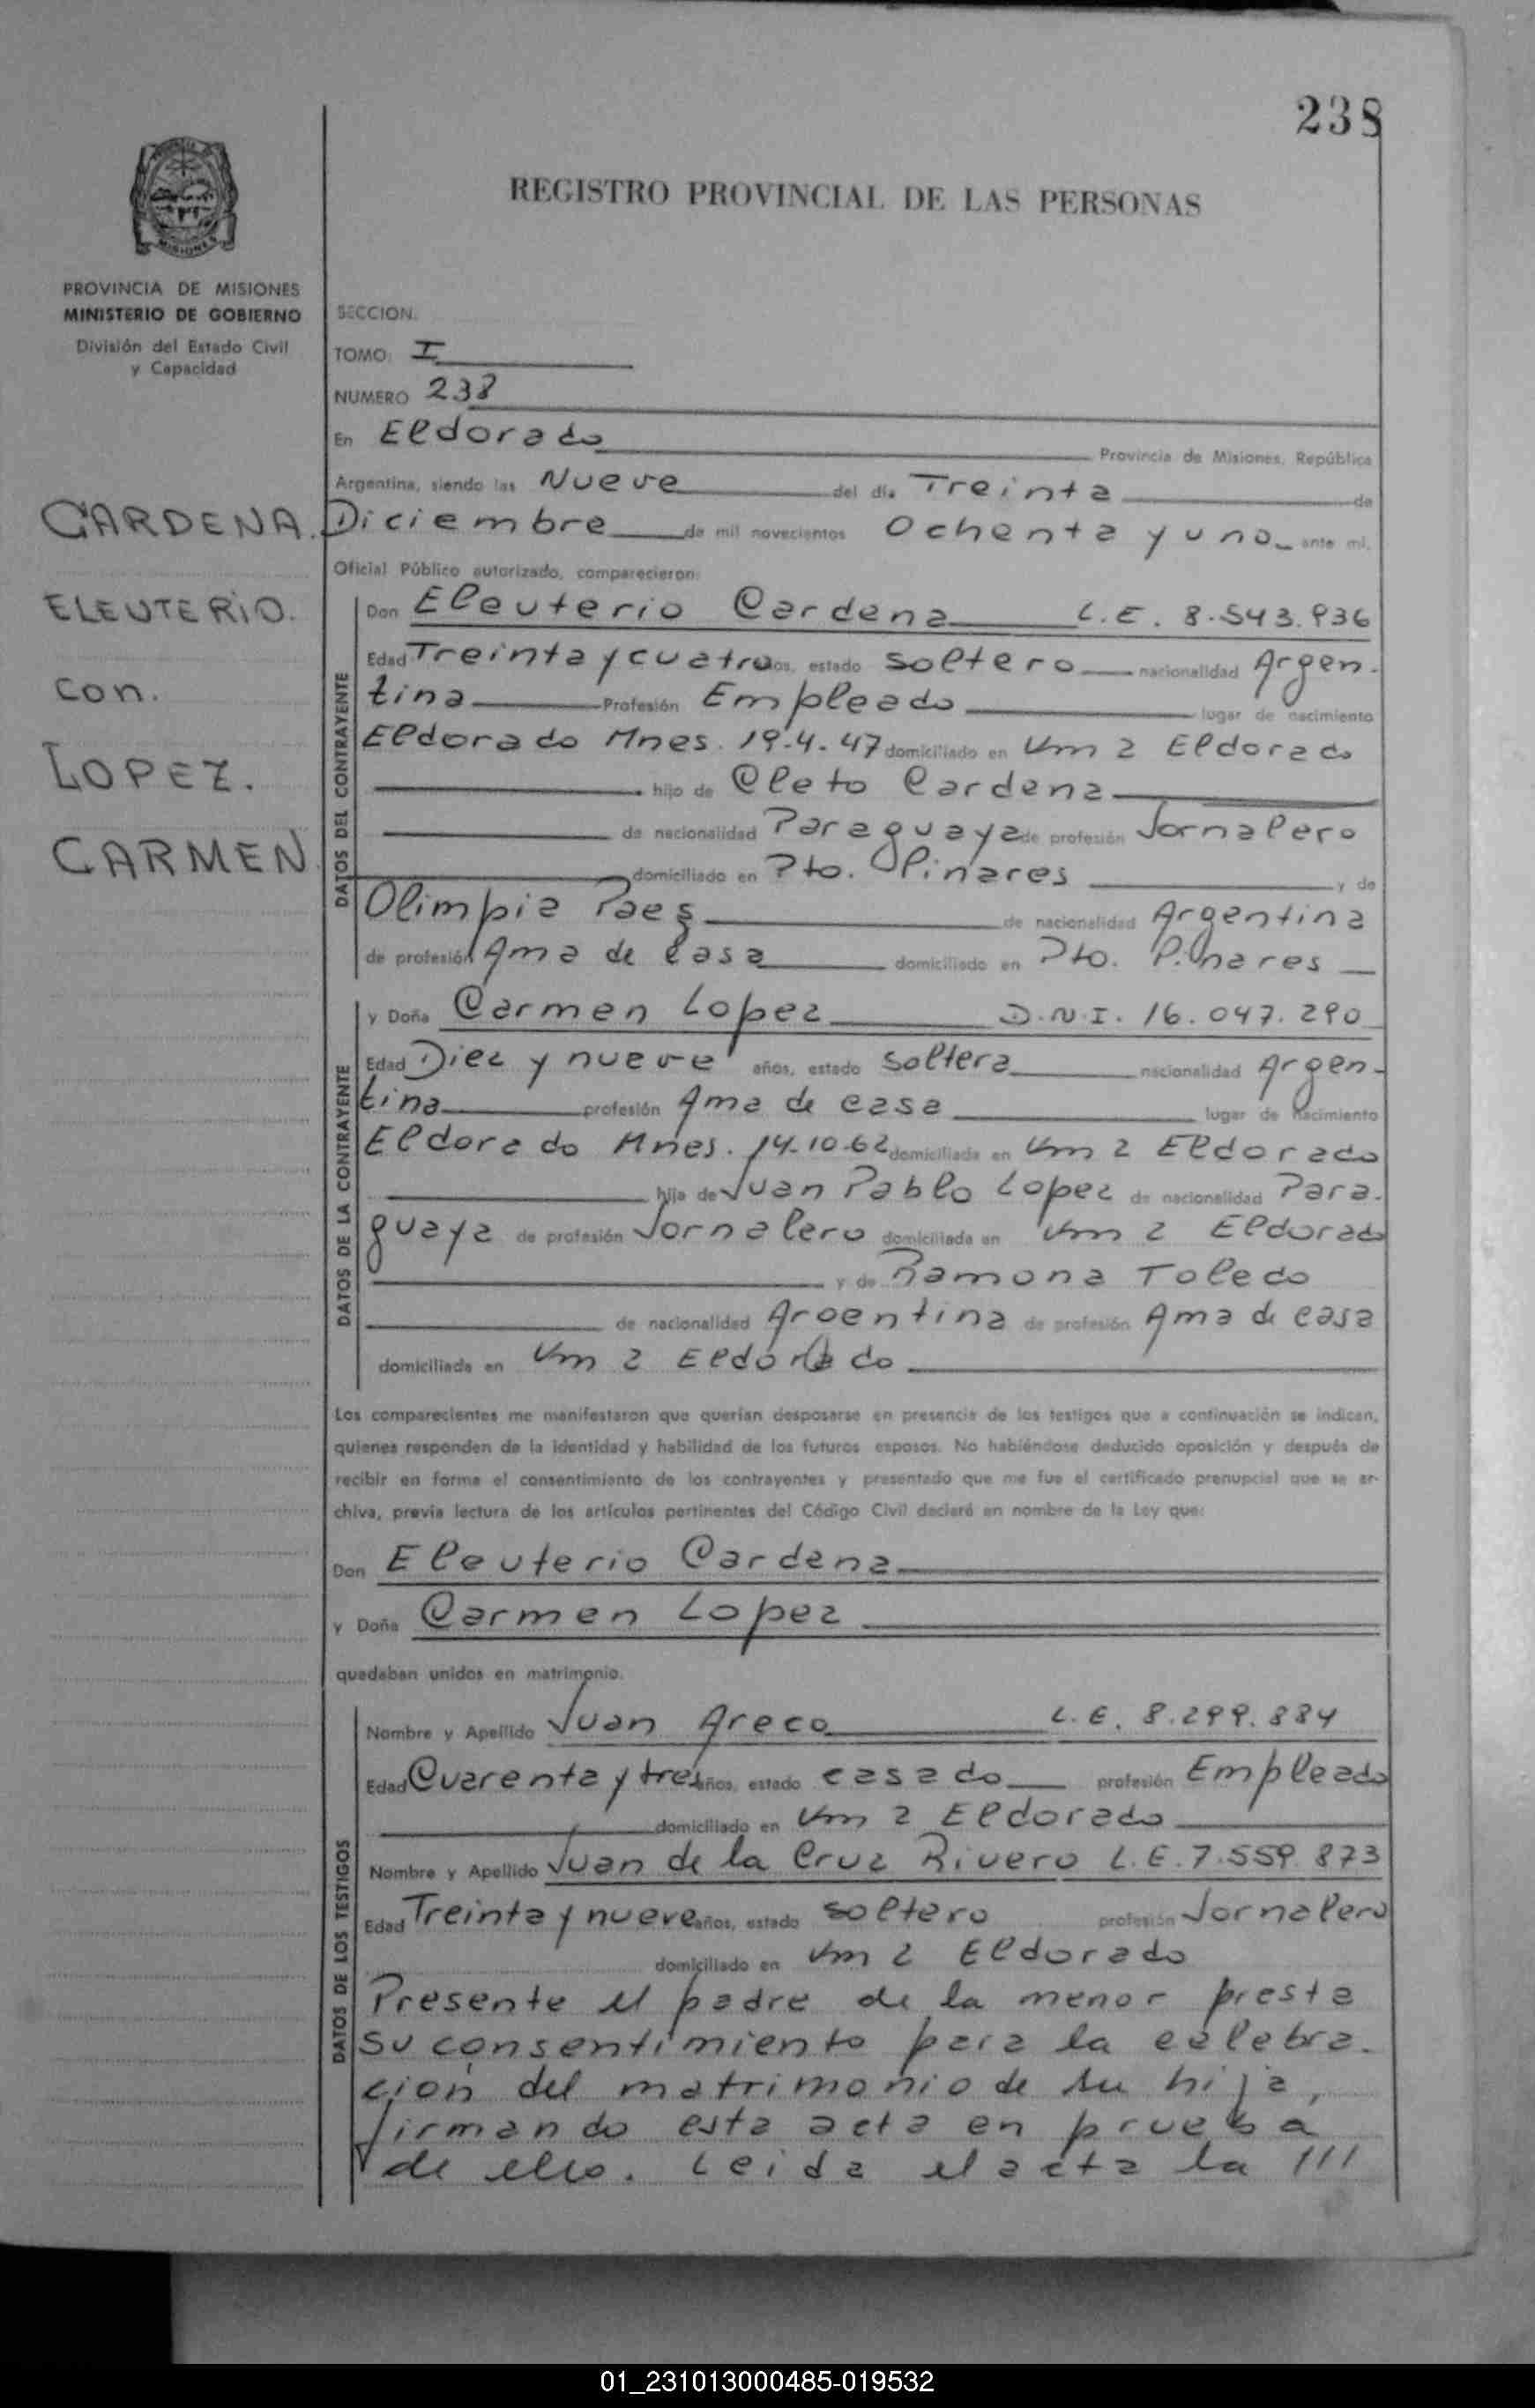 238
REGISTRO PROVINCIAL DE LAS PERSONAS
MISIONES
PROVINCIA DE MISIONES
MINISTERIO DE GOBIERNO
División del Estado Civil
y Capacidad
CARDENA.
ELEUTERIO.
con.
LOPEZ.
CARMEN
SECCION.
TOMO: I
NUMERO 238
En Eldorado Provincia de Misiones, República
Argentina, siendo las Nueve del día Treinta de
Diciembre de mil novecientos Ochenta y uno ante mí,
Oficial Público autorizado, comparecieron:
DATOS DEL CONTRAYENTE
Don Eleuterio Cardena L.E. 8.543.936
Edad Treinta y cuatro años, estado soltero nacionalidad Argen-
tina Profesión Empleado lugar de nacimiento
Eldorado Mnes. 19.4.47 domiciliado en Km 2 Eldorado
hijo de Cleto Cardena
de nacionalidad Paraguaya de profesión Jornalero
domiciliado en Pto. Pinares y de
Olimpia Paez de nacionalidad Argentina
de profesión Ama de casa domiciliado en Pto. Pinares
DATOS DE LA CONTRAYENTE
y Doña Carmen Lopez D.N.I. 16.047.290
Edad Diez y nueve años, estado soltera nacionalidad Argen-
tina profesión Ama de casa lugar de nacimiento
Eldorado Mnes. 14-10-62 domiciliada en Km 2 Eldorado
hija de Juan Pablo Lopez de nacionalidad Para-
guaya de profesión Jornalero domiciliada en Km 2 Eldorado
y de Ramona Toledo
de nacionalidad Argentina de profesión Ama de casa
domiciliada en Km 2 Eldorado
Los comparecientes me manifestaron que querían desposarse en presencia de los testigos que a continuación se indican,
quienes responden de la identidad y habilidad de los futuros esposos. No habiéndose deducido oposición y después de
recibir en forma el consentimiento de los contrayentes y presentado que me fue el certificado prenupcial que se ar-
chiva, previa lectura de los artículos pertinentes del Código Civil declaré en nombre de la Ley que:
Don Eleuterio Cardena
y Doña Carmen Lopez
quedaban unidos en matrimonio.
DATOS DE LOS TESTIGOS
Nombre y Apellido Juan Areco L.E. 8.299.884
Edad Cuarenta y tres años, estado casado profesión Empleado
domiciliado en Km 2 Eldorado
Nombre y Apellido Juan de la Cruz Rivero L.E. 7.559.873
Edad Treinta y nueve años, estado soltero profesión Jornalero
domiciliado en Km 2 Eldorado
Presente el padre de la menor presta
su consentimiento para la celebra-
cion del matrimonio de su hija,
firmando esta acta en prueba
de ello. Leida el acta la ///
01_231013000485-019532